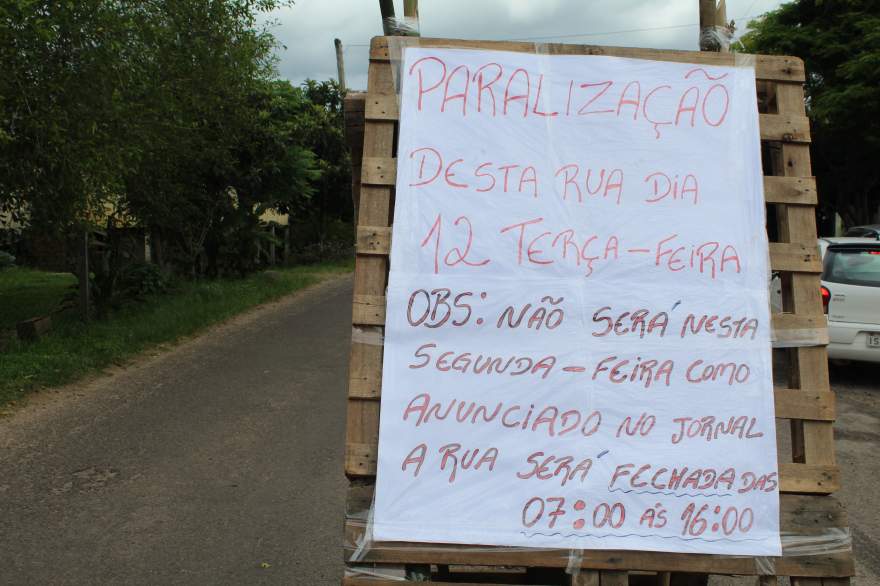 PARALIZAÇÃO
DESTA RUA DIA
12 TERÇA-FEIRA
OBS: NÃO SERÁ NESTA
SEGUNDA-FEIRA COMO
ANUNCIADO NO JORNAL
A RUA SERÁ FECHADA DAS
07:00 ÁS 16:00